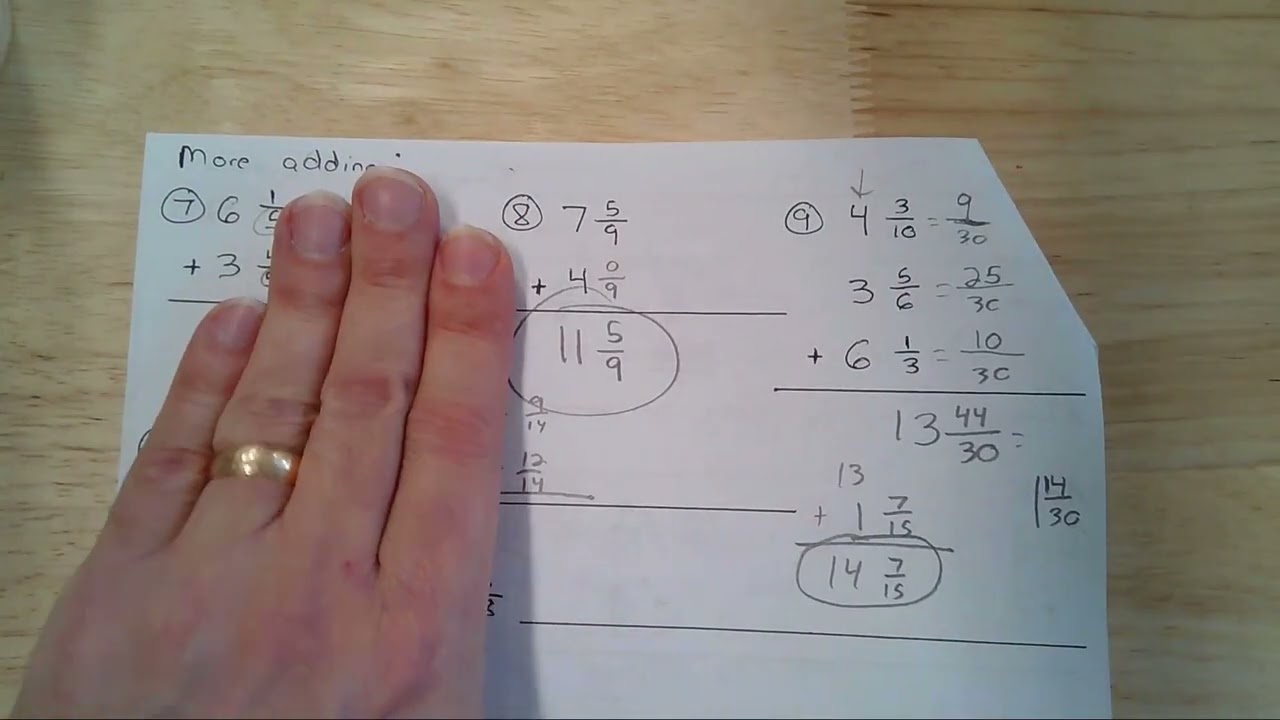 More adding
⑦ 6 1/
+ 3
⑧ 7 5/9
+ 4 0/9
11 5/9
9/14
12/14
⑨ 4 3/10 = 9/30
3 5/6 = 25/30
+ 6 1/3 = 10/30
13 44/30 =
1 14/30
13
+ 1 7/15
14 7/15